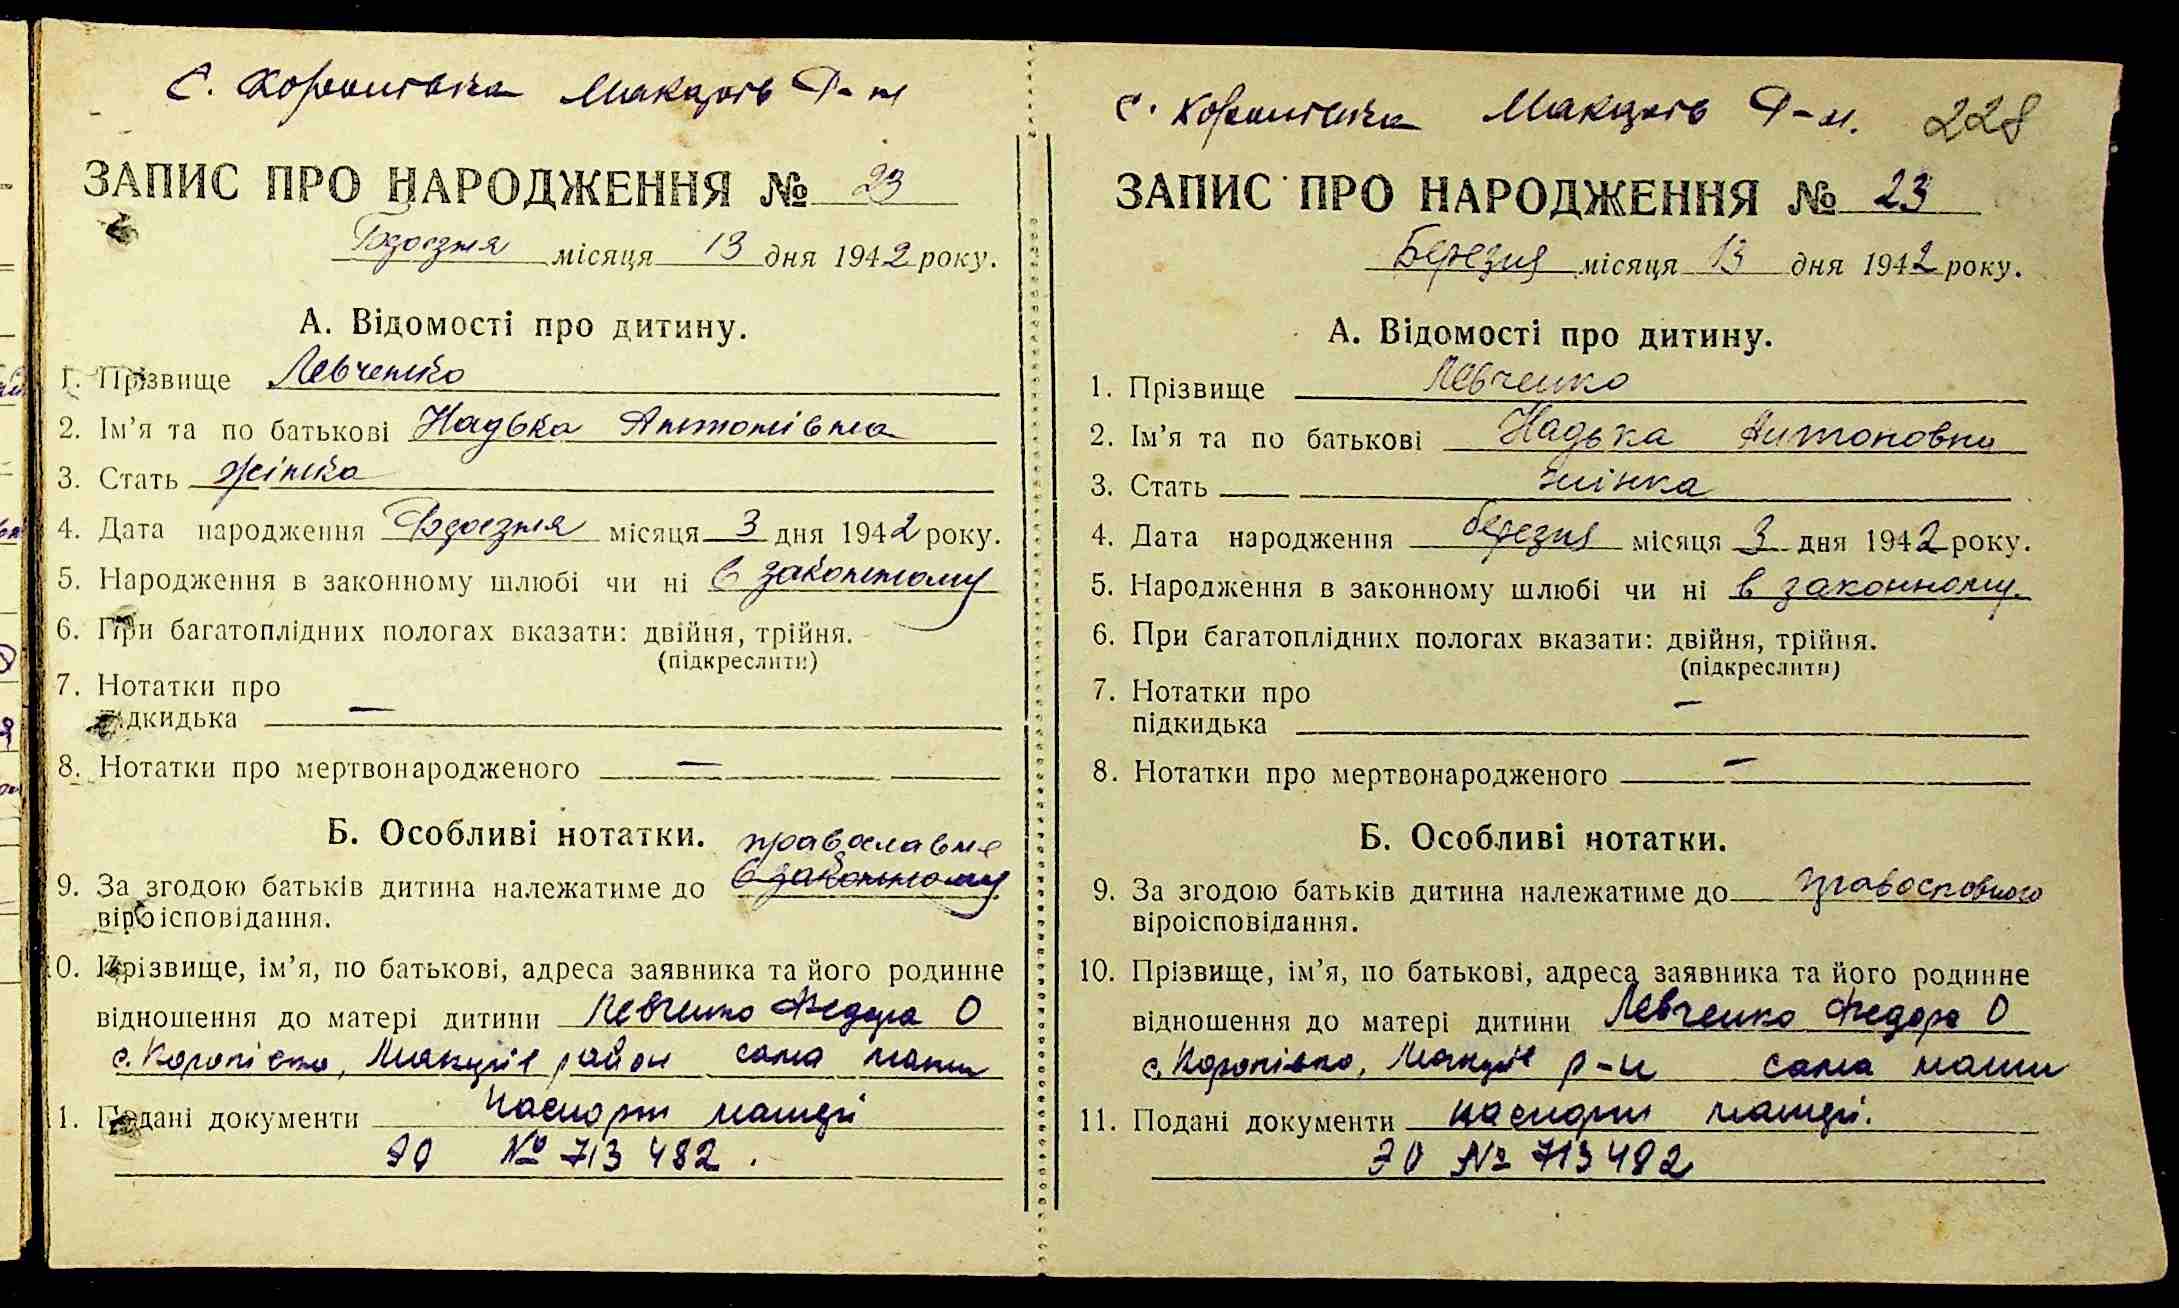 с. Королівка Макарів Р-н
ЗАПИС ПРО НАРОДЖЕННЯ № 23
Березня місяця 13 дня 1942 року.
А. Відомості про дитину.
1. Прізвище Левченко
2. Ім'я та по батькові Надька Антонівна
3. Стать жінка
4. Дата народження Березня місяця 3 дня 1942 року.
5. Народження в законному шлюбі чи ні в законному
6. При багатоплідних пологах вказати: двійня, трійня.
(підкреслити)
7. Нотатки про
підкидька —
8. Нотатки про мертвонародженого —
Б. Особливі нотатки.
православне
9. За згодою батьків дитина належатиме до в законному
віроісповідання.
10. Прізвище, ім'я, по батькові, адреса заявника та його родинне
відношення до матері дитини Левченко Федора О
с. Королівка, Макарів район сама мати
11. Подані документи Паспорт матері
ЭО № 713482.
с. Королівка Макарів Р-н. 228
ЗАПИС ПРО НАРОДЖЕННЯ № 23
Березня місяця 13 дня 1942 року.
А. Відомості про дитину.
1. Прізвище Левченко
2. Ім'я та по батькові Надька Антоновна
3. Стать жінка
4. Дата народження березня місяця 3 дня 1942 року.
5. Народження в законному шлюбі чи ні в законному
6. При багатоплідних пологах вказати: двійня, трійня.
(підкреслити)
7. Нотатки про
підкидька —
8. Нотатки про мертвонародженого —
Б. Особливі нотатки.
9. За згодою батьків дитина належатиме до православного
віроісповідання.
10. Прізвище, ім'я, по батькові, адреса заявника та його родинне
відношення до матері дитини Левченко Федора О
с. Королівка, Макарів р-н сама мати
11. Подані документи паспорт матері.
ЭО № 713482